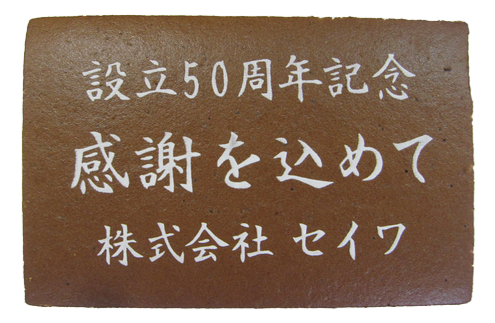 設立50周年記念
感謝を込めて
株式会社 セイワ